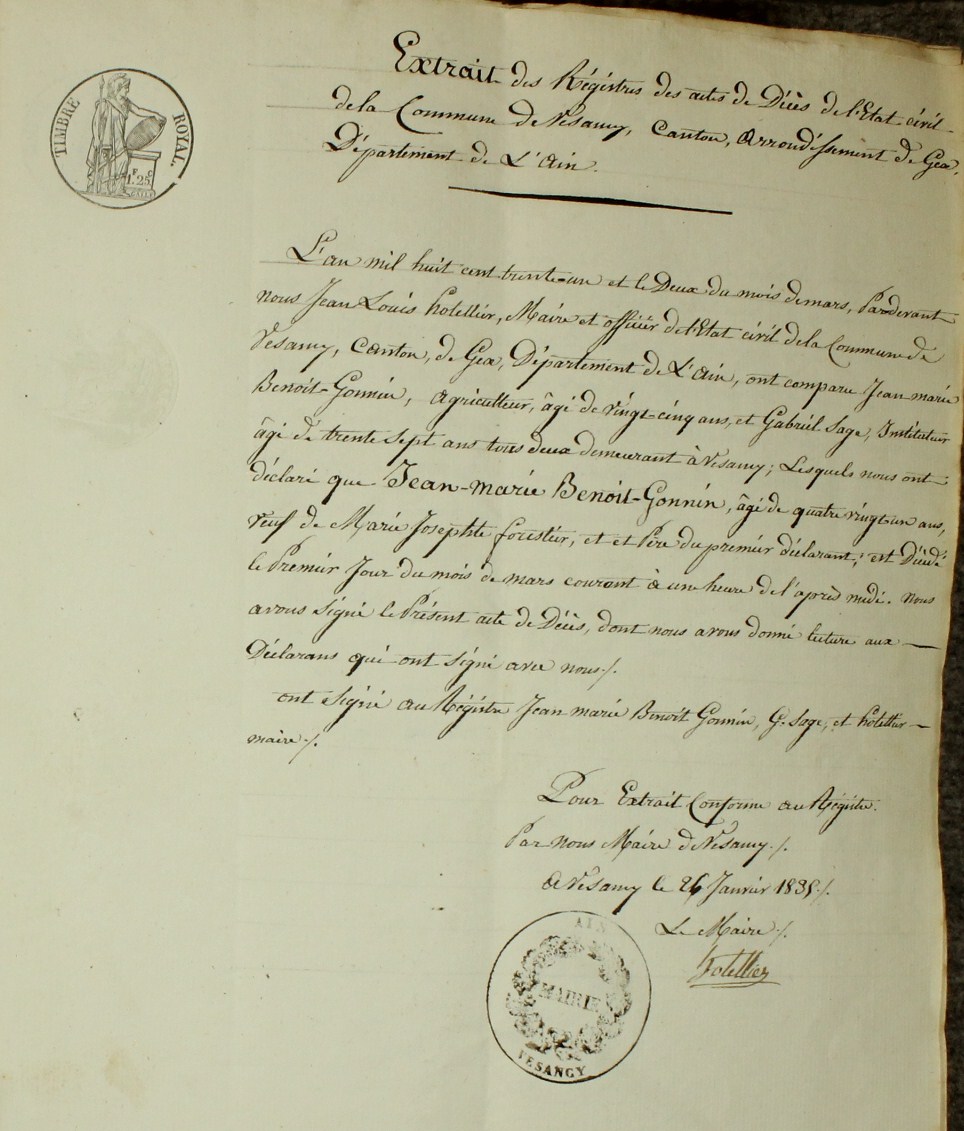 TIMBRE ROYAL.
F. C.
1.25
Extrait des Régistres des actes de Décès de l'Etat civil
de la Commune de Vésancy, Canton, Arrondissement de Gex,
Département de L'Ain.
L'an mil huit cent trente-un et le Deux du mois de mars, Pardevant
nous Jean Louis hotellier, Maire et officier de l'Etat civil de la Commune de
Vésancy, Canton, de Gex, Département de L'Ain, ont comparu Jean marie
Benoit-Gonnin, Agriculteur, âgé de vingt-cinq ans, et Gabriel Sage, Instituteur
âgé de trente sept ans tous deux demeurant à Vésancy; Lesquels nous ont
déclaré que Jean-marie Benoit-Gonnin, âgé de quatre vingt un ans,
veuf de Marie Josephte forestier, et et Père du premier déclarant; est Décédé
le Premier Jour du mois de mars courant à une heure de l'après midi. nous
avons signé le Présent acte de Décès, dont nous avons donné lecture aux
Déclarans qui ont signé avec nous ./.
ont signé au Régistre Jean marie Benoit Gonnin, G. Sage, et hotellier
maire ./.
Pour Extrait Conforme au Régistre.
Par nous Maire de Vésancy ./.
A Vésancy le 26 Janvier 1835 ./.
Le Maire ./.
hotellier
AIN
MAIRIE
VESANGY